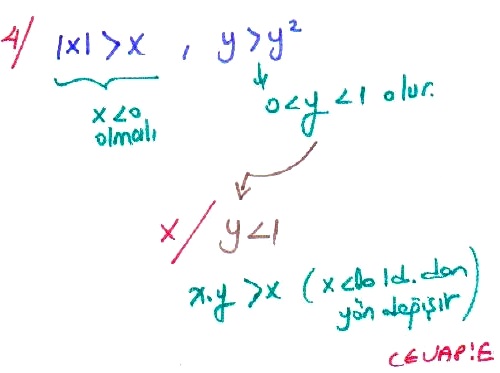 4/ |x| > x , y > y²
x < 0
olmalı
0 < y < 1 olur.
x/ y < 1
x.y > x (x<0 old.dan
yön değişir)
CEVAP:E